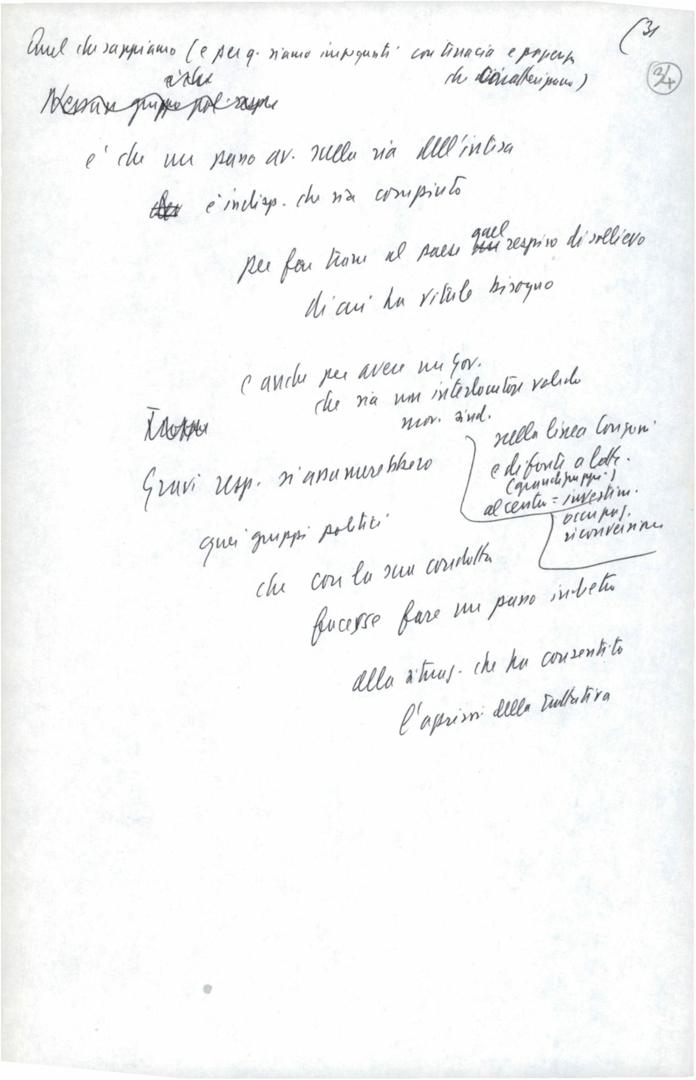 (31
34
Quel che sappiamo (e per q. siamo impegnati con tenacia e
che ci caratterizzano)
è che un passo av. sulla via dell'intesa
è indisp. che sia compiuto
per far trarre al paese quel respiro di sollievo
di cui ha vitale bisogno
e anche per avere un Gov.
che sia un interlocutore valido
mov. sind.
Gravi resp. si assumerebbero
quei gruppi politici
che con la sua condotta
facesse fare un passo indietro
alla situaz. che ha consentito
l'aprirsi della trattativa
nella linea
e di fonte a
(grandi gruppi)
al centro = investim.
occupaz.
riconversione